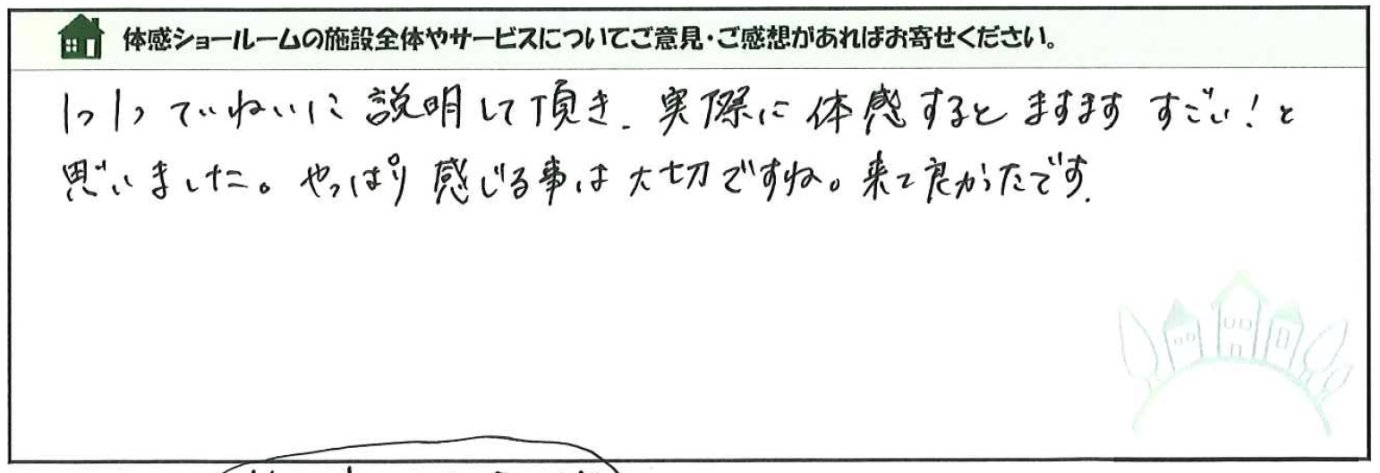 体感ショールームの施設全体やサービスについてご意見・ご感想があればお寄せください。
1つ1つていねいに説明して頂き、実際に体感するとますますすごい！と
思いました。やっぱり感じる事は大切ですね。来て良かったです。